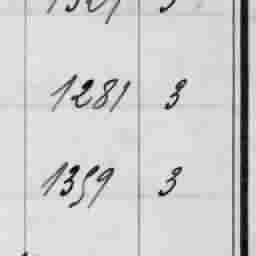 1281 3
1359 3